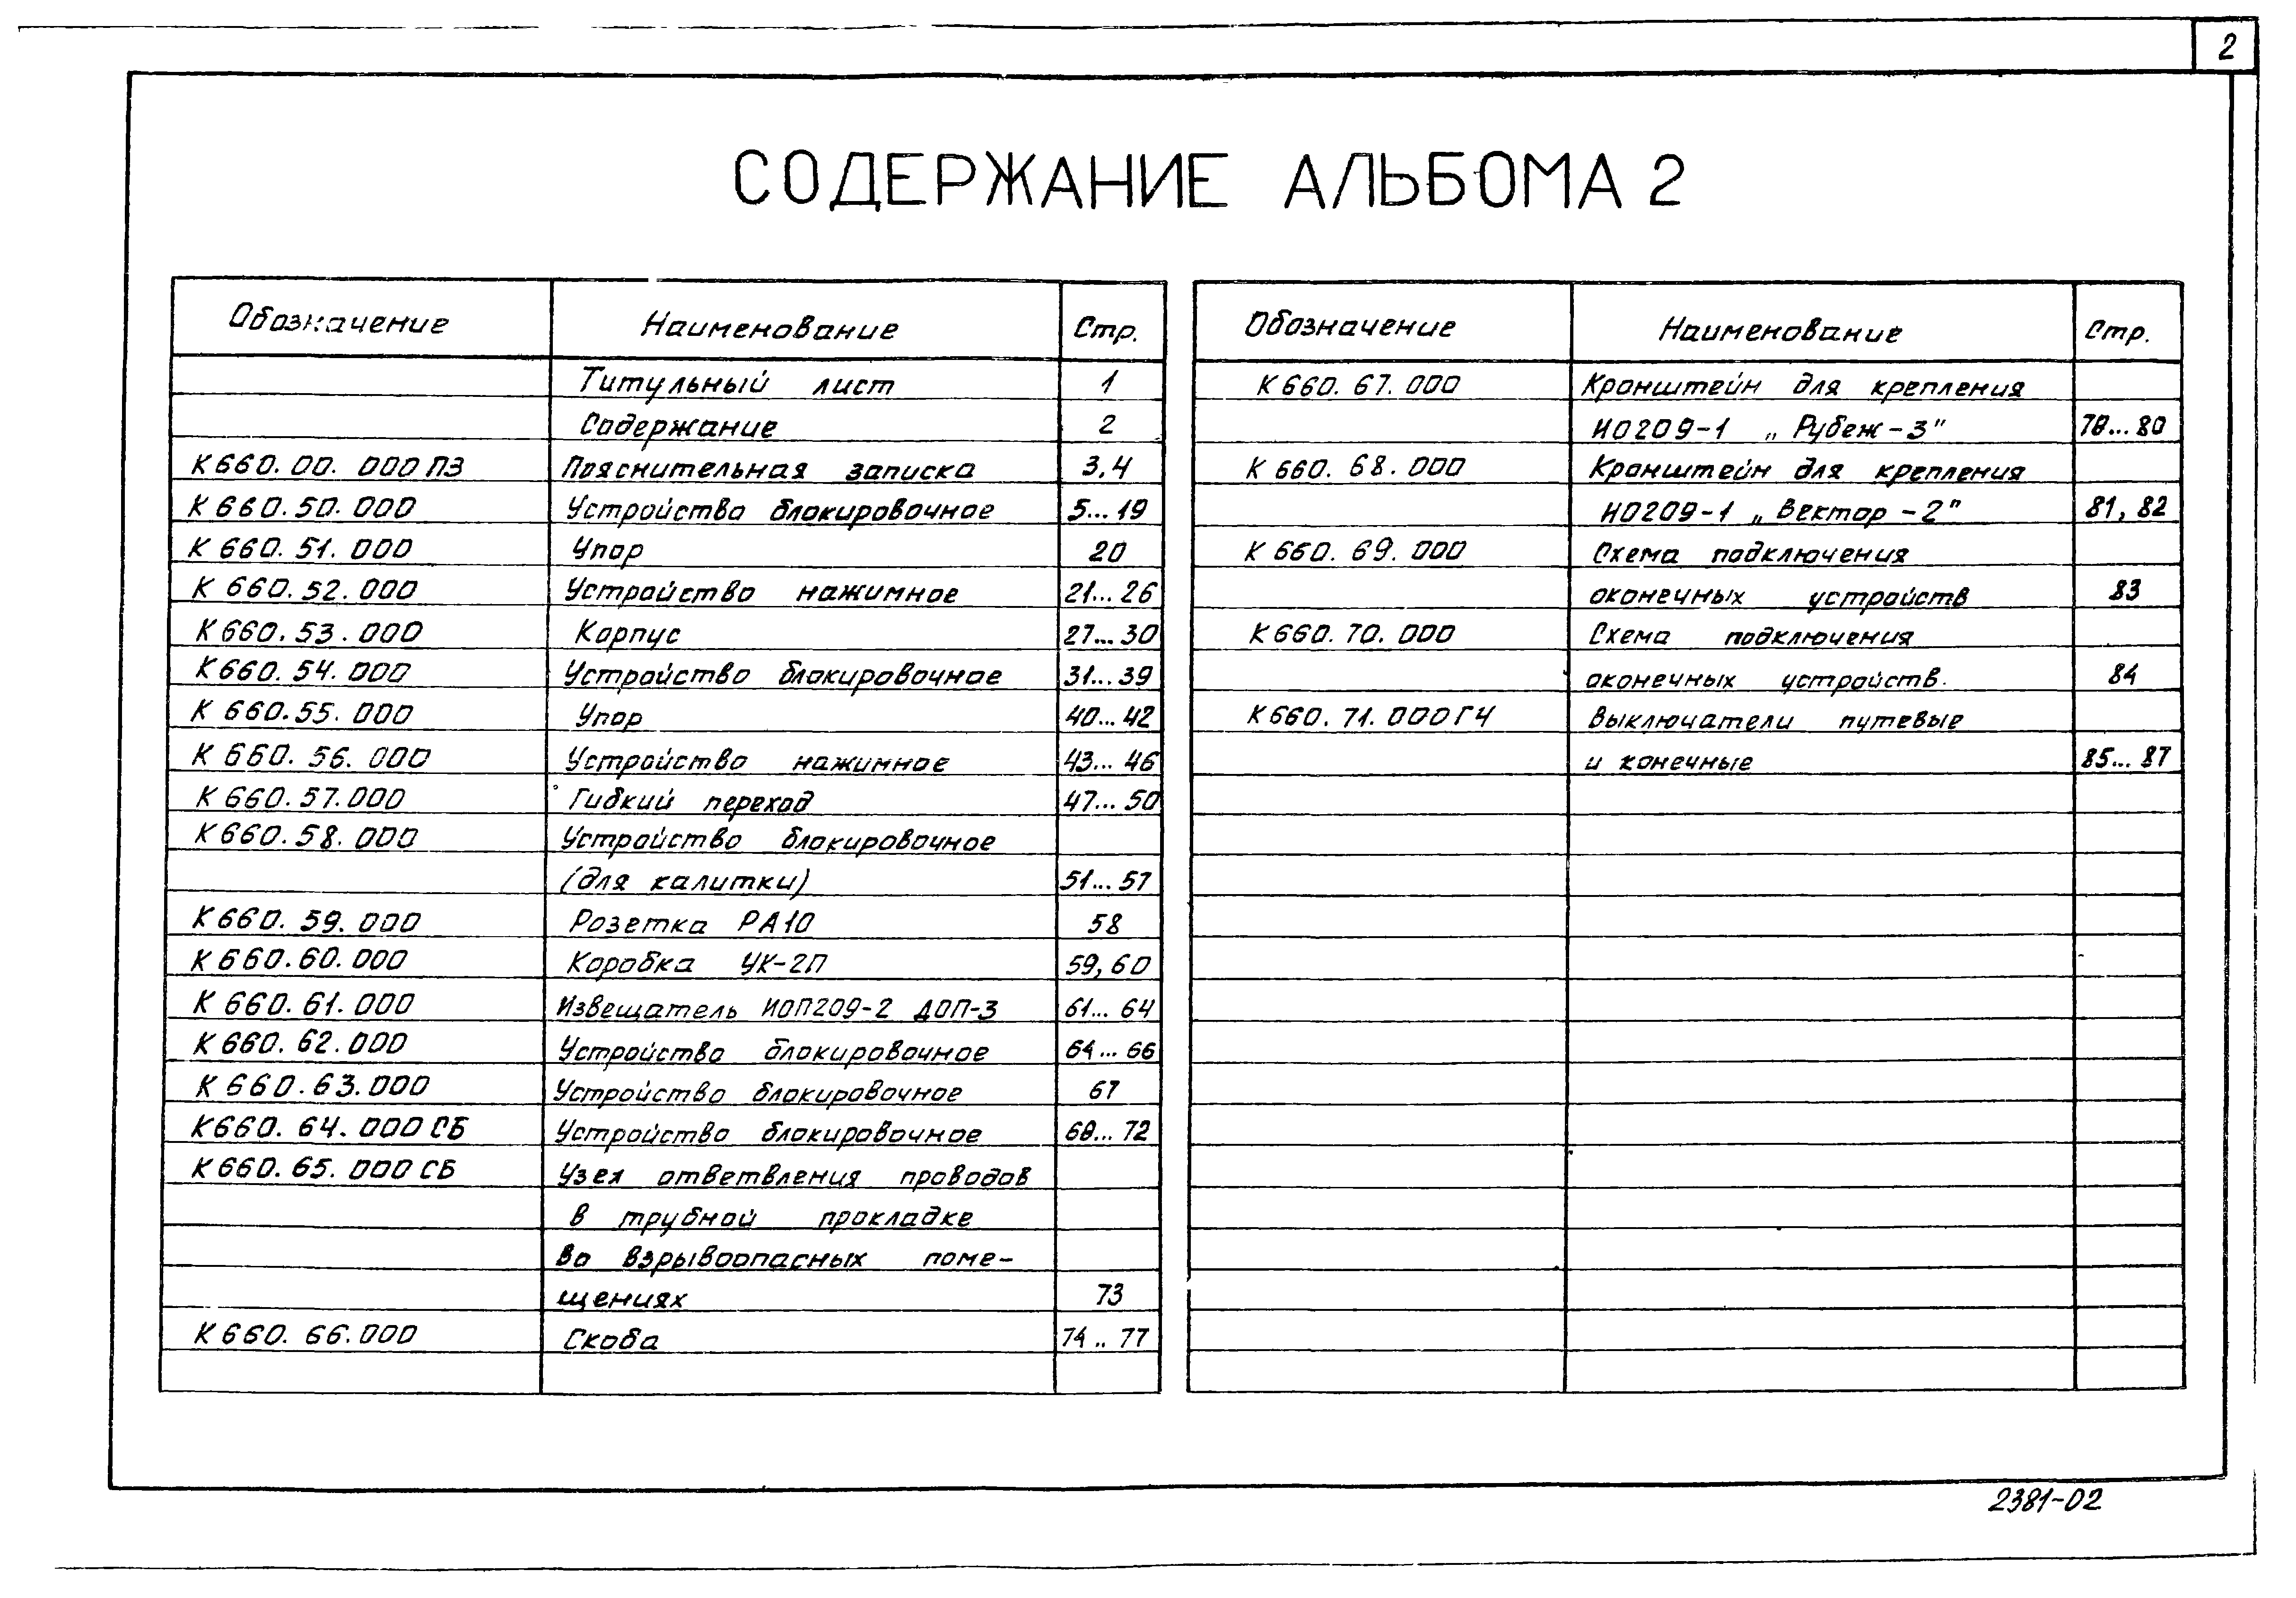 2
СОДЕРЖАНИЕ АЛЬБОМА 2
Обозначение Наименование Стр.
Титульный лист 1
Содержание 2
К660.00.000ПЗ Пояснительная записка 3,4
К660.50.000 Устройство блокировочное 5...19
К660.51.000 Упор 20
К660.52.000 Устройство нажимное 21...26
К660.53.000 Корпус 27...30
К660.54.000 Устройство блокировочное 31...39
К660.55.000 Упор 40...42
К660.56.000 Устройство нажимное 43...46
К660.57.000 Гибкий переход 47...50
К660.58.000 Устройство блокировочное
(для калитки) 51...57
К660.59.000 Розетка РА10 58
К660.60.000 Коробка УК-2П 59,60
К660.61.000 Извещатель ИОП209-2 ДОП-3 61...64
К660.62.000 Устройство блокировочное 64...66
К660.63.000 Устройство блокировочное 67
К660.64.000СБ Устройство блокировочное 68...72
К660.65.000СБ Узел ответвления проводов
в трубной прокладке
во взрывоопасных поме-
щениях 73
К660.66.000 Скоба 74..77
Обозначение Наименование Стр.
К660.67.000 Кронштейн для крепления
ИО209-1 „Рубеж-3" 78...80
К660.68.000 Кронштейн для крепления
ИО209-1 „Вектор-2" 81,82
К660.69.000 Схема подключения
оконечных устройств 83
К660.70.000 Схема подключения
оконечных устройств. 84
К660.71.000ГЧ Выключатели путевые
и конечные 85...87
2381-02